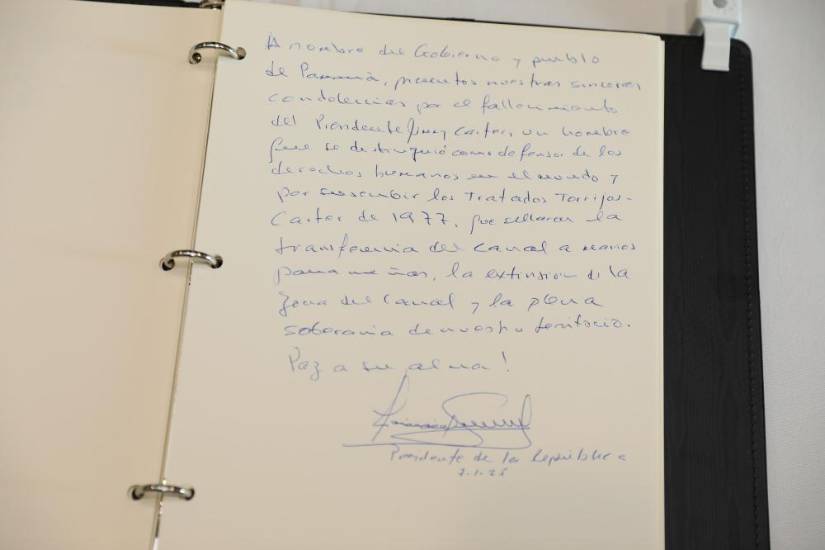 A nombre del Gobierno y pueblo
de Panamá, presentos nuestras sinceras
condolencias por el fallecimiento
del Presidente Jimmy Carter, un hombre
que se distinguió como defensor de los
derechos humanos en el mundo y
por suscribir los Tratados Torrijos-
Carter de 1977, que sellaron la
transferencia del Canal a manos
panameñas, la extinsion de la
Zona del Canal y la plena
soberania de nuestro territorio.
Paz a su alma!
Presidente de la República